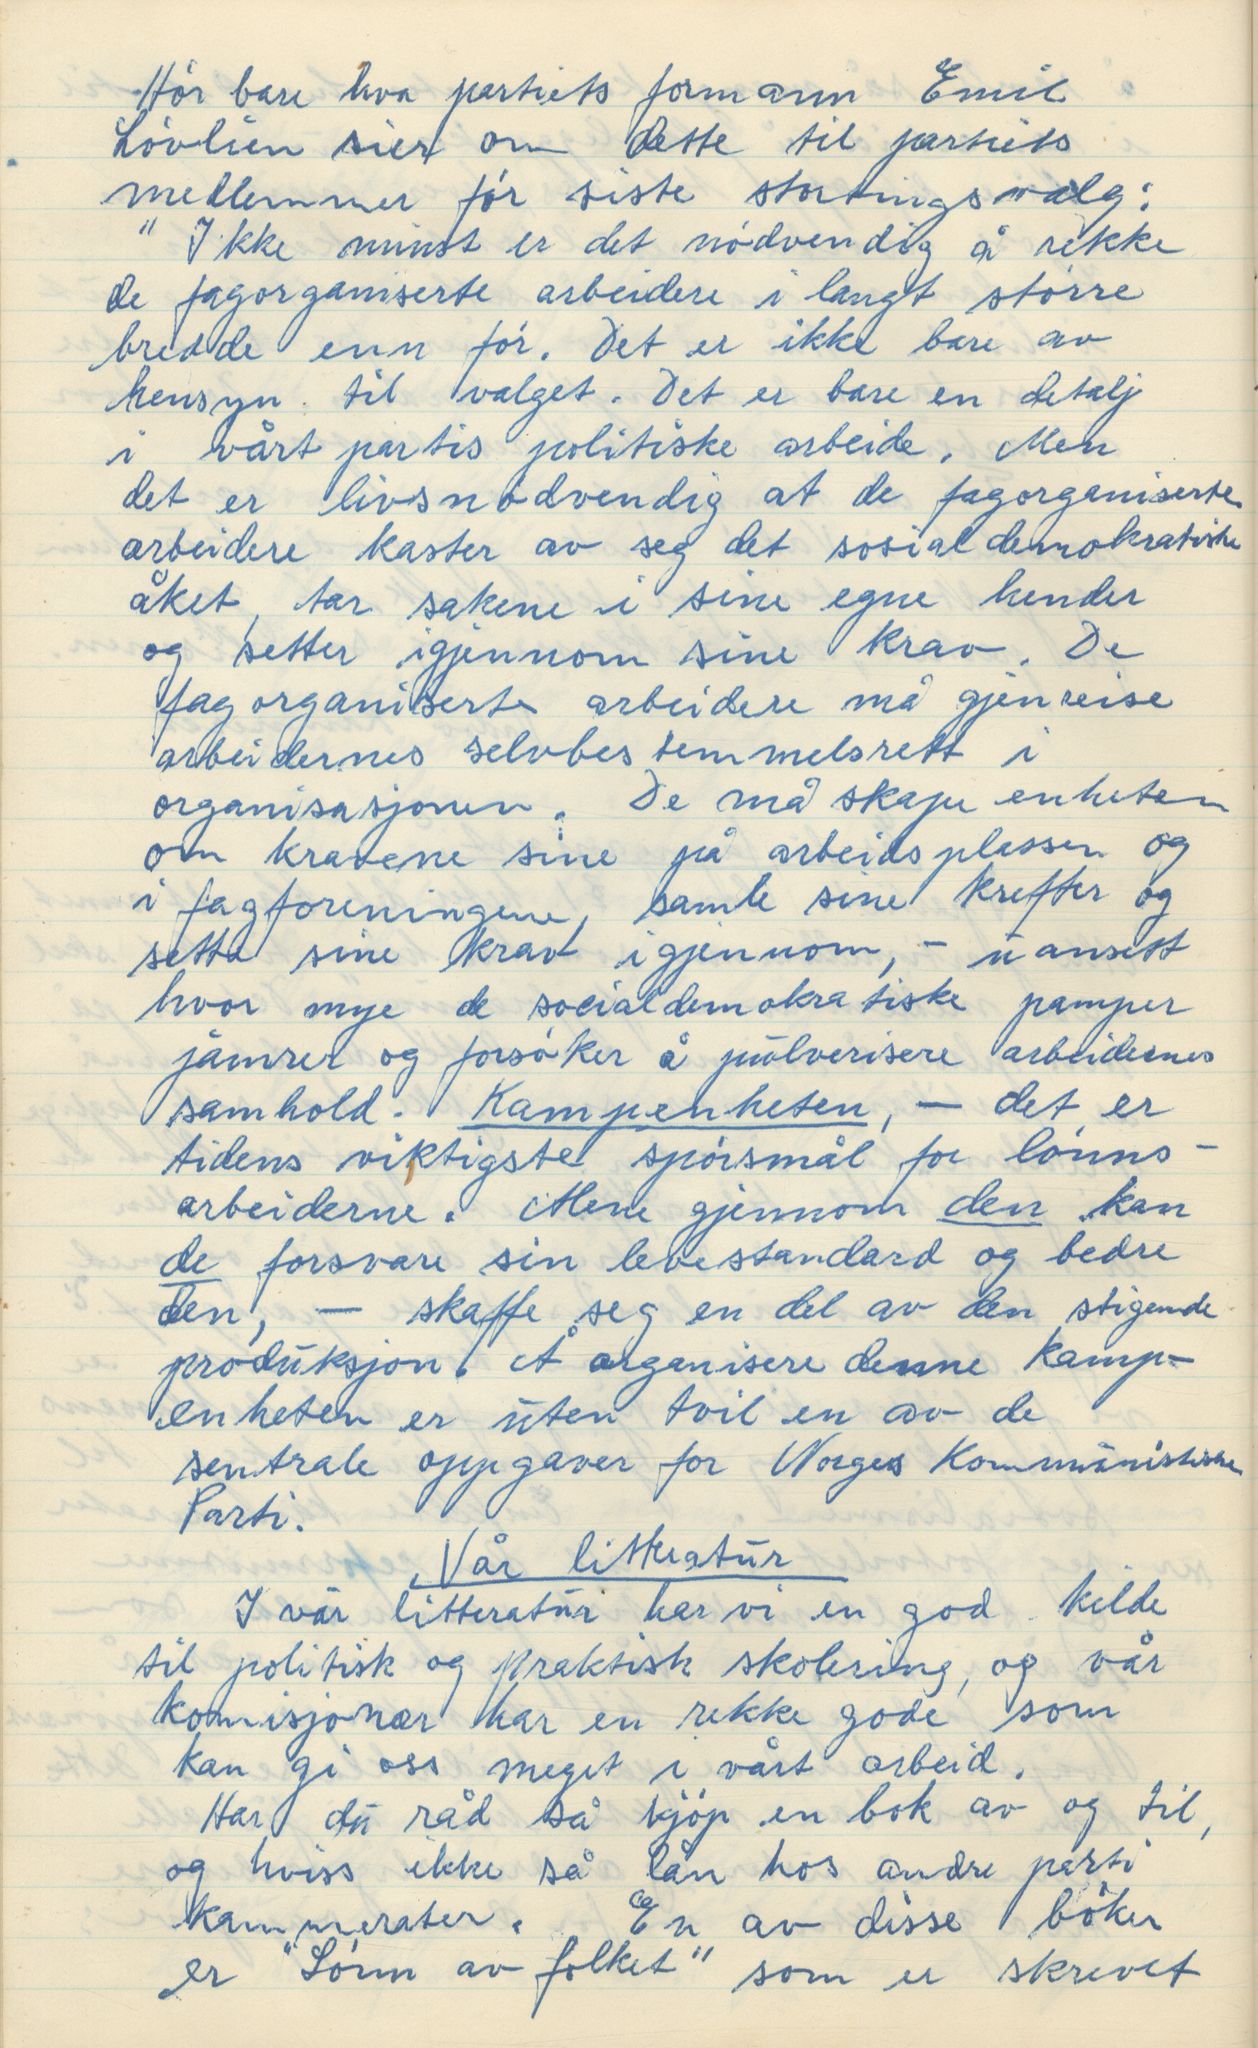 Hør bare hva partiets formann Emil
Løvlien sier om dette til partiets
medlemmer før siste stortingsvalg:
" Ikke minst er det nødvendig å rekke
de fagorganiserte arbeidere i langt større
bredde enn før. Det er ikke bare av
hensyn til valget. Det er bare en detalj
i vårt partis politiske arbeide. Men
det er livsnødvendig at de fagorganiserte
arbeidere kaster av seg det sosialdemokratiske
åket, tar sakene i sine egne hender
og setter igjennom sine krav. De
fagorganiserte arbeidere må gjenreise
arbeidernes selvbestemmelsrett i
organisasjonen. De må skape enheten
om kravene sine på arbeidsplassen og
i fagforeningene, samle sine krefter og
sette sine krav igjennom, - uansett
hvor mye de socialdemokratiske pamper
jamrer og forsøker å pulverisere arbeidernes
samhold. Kampenheten, - det er
tidens viktigste spørsmål for lønns-
arbeiderne. Mene gjennom den kan
de forsvare sin levestandard og bedre
den, - skaffe seg en del av den stigende
produksjon. Å organisere denne kamp-
enheten er uten tvil en av de
sentrale oppgaver for Norges Kommunistiske
Parti.
Vår litteratur
I vår litteratur har vi en god kilde
til politisk og praktisk skolering, og vår
komisjonær har en rekke gode som
kan gi oss meget i vårt arbeid.
Har du råd så kjøp en bok av og til,
og hviss ikke så lån hos andre parti
kammerater. En av disse bøker
er "Sønn av folket" som er skrevet